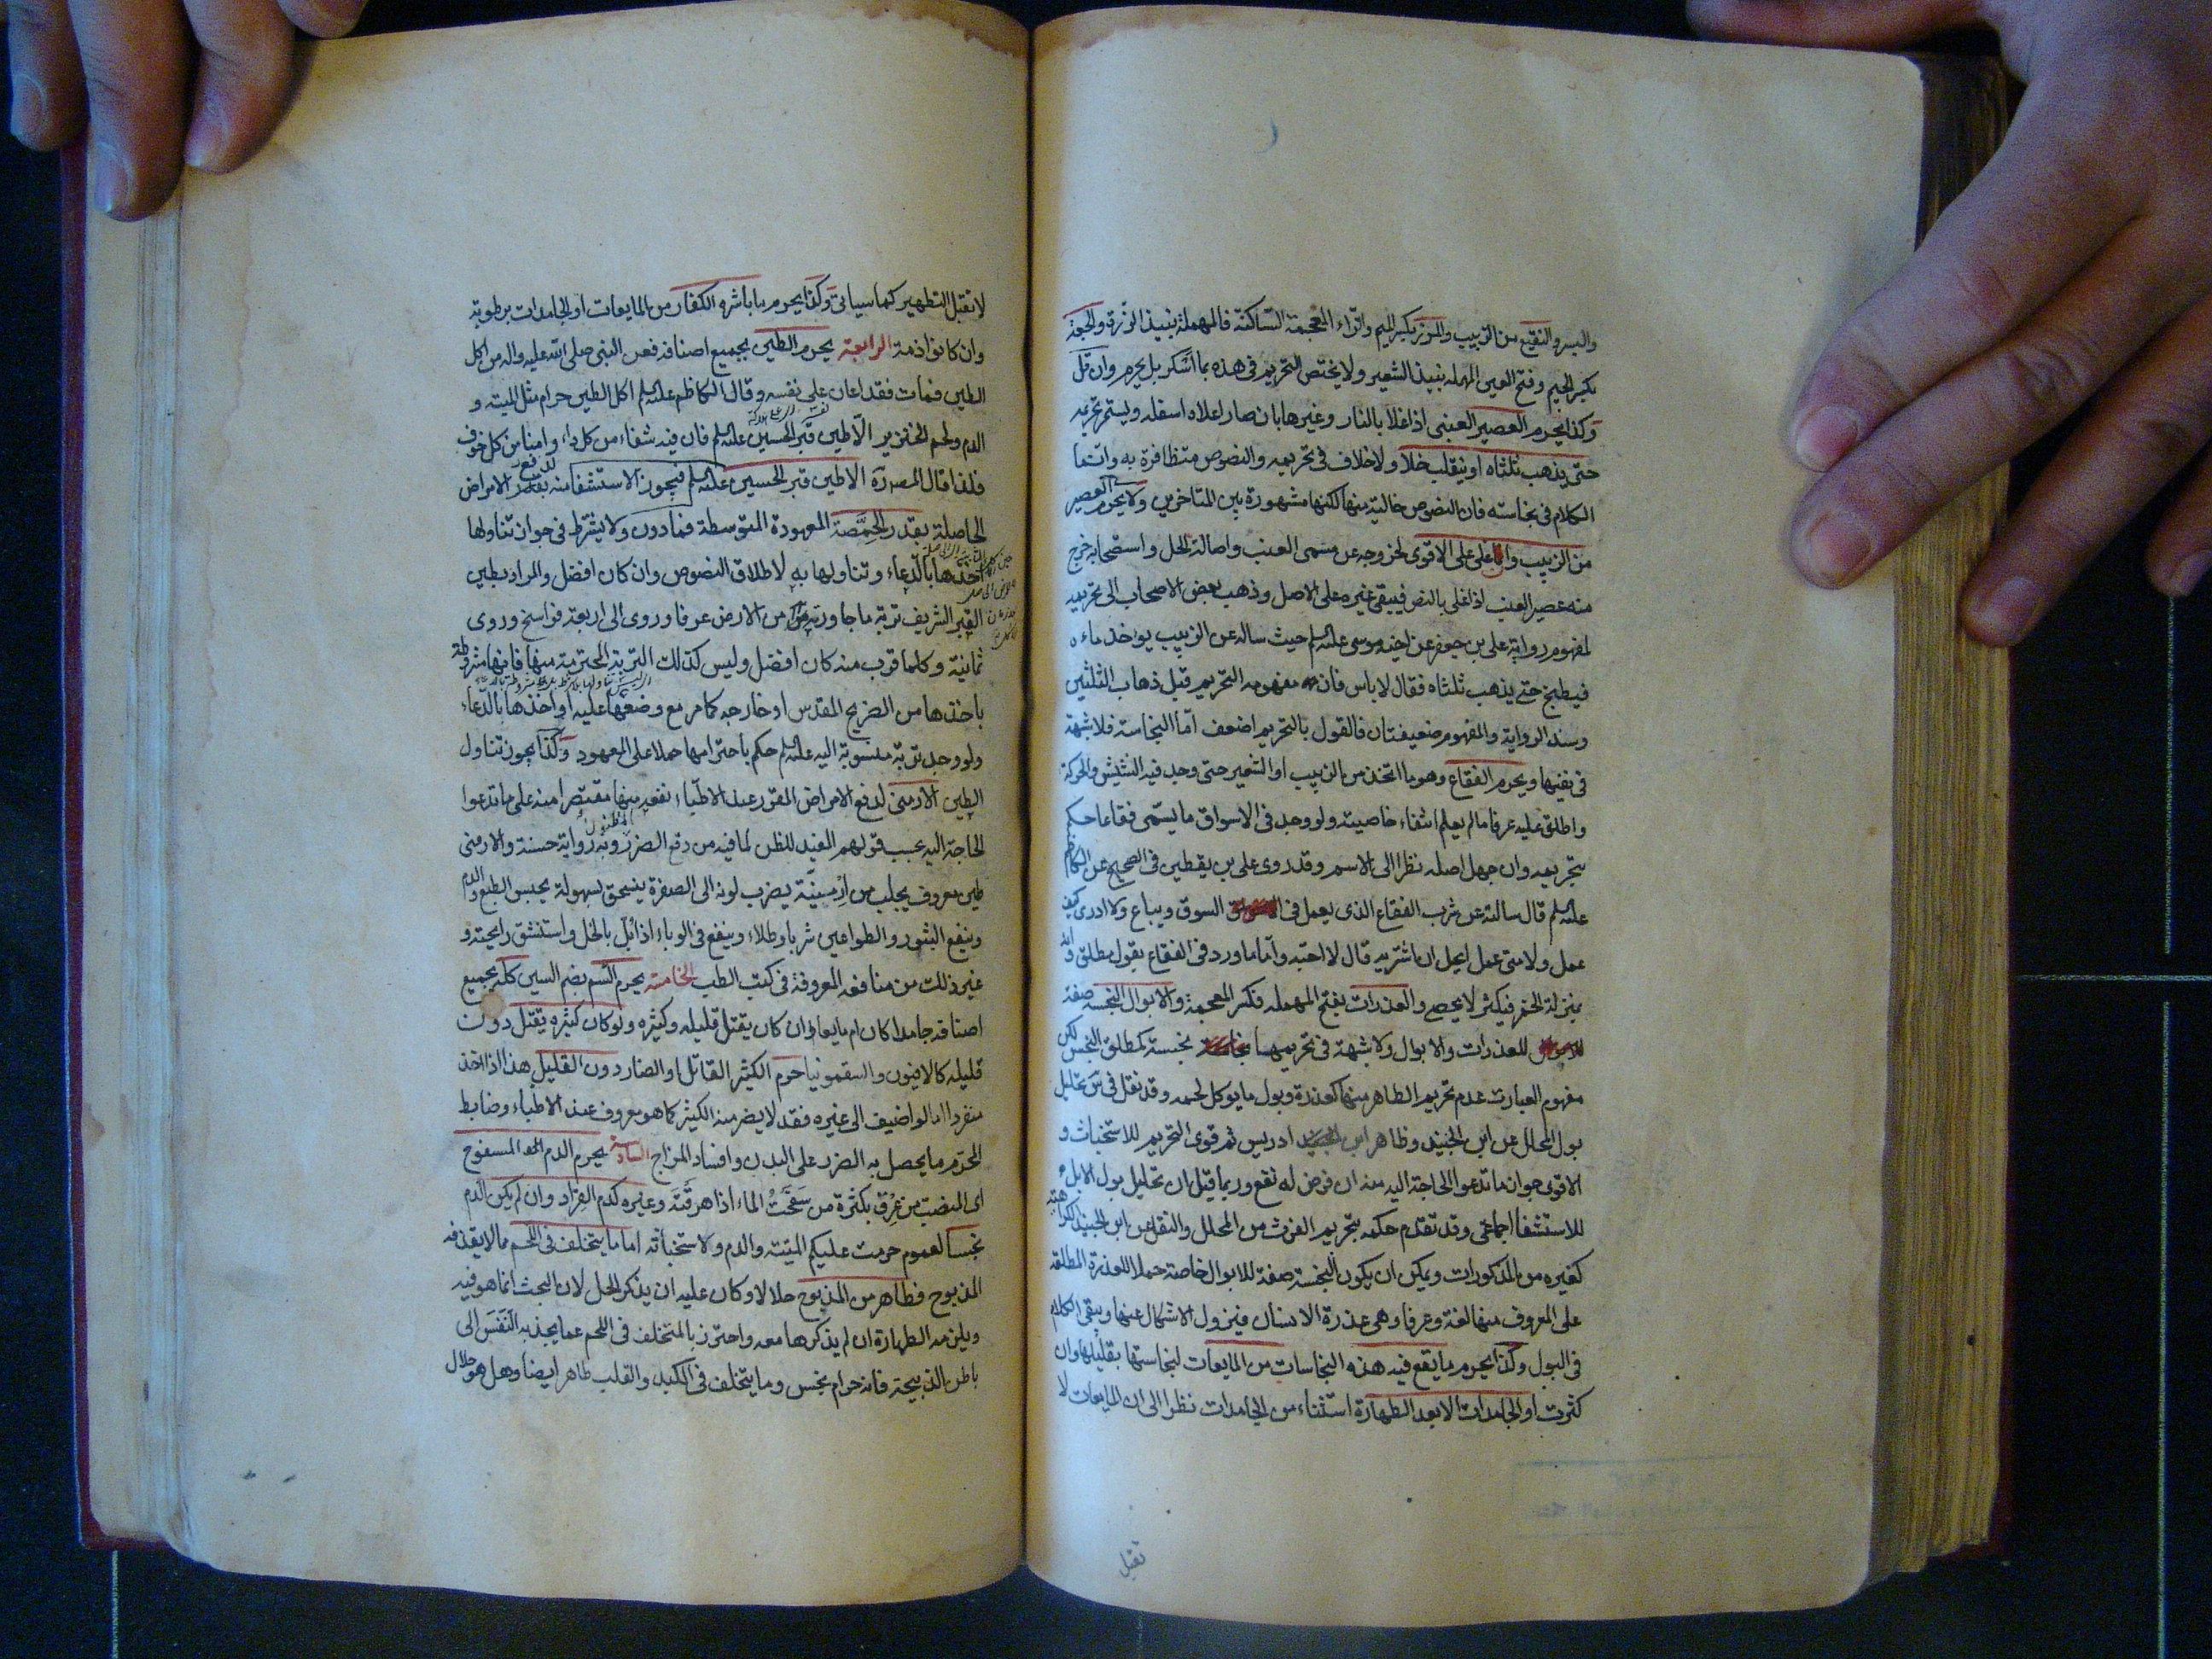 والبسر والنقيع من الزبيب والمزر بكسر الميم والزاء المعجمة الساكنة فالمهملة نبيذ الذرة والجعة
بكسر الجيم وفتح العين المهملة نبيذ الشعير ولا يختص التحريم في هذه بما اسكر بل يحرم وان قل
وكذا يحرم العصير العنبي اذا غلا بالنار وغيرها بان صار اعلاه اسفله ويستمر تحريمه
حتى يذهب ثلثاه او ينقلب خلا ولا خلاف في تحريمه والنصوص متظافرة به وانما
الكلام في نجاسته فان النصوص خالية منها لكنها مشهورة بين المتاخرين ولا يحرم العصير
من الزبيب وان غلى على الاقوى لخروجه عن مسمى العنب واصالة الحل واستصحابه خرج
منه عصير العنب اذا غلى بالنص فيبقى غيره على الاصل وذهب بعض الاصحاب الى تحريمه
لمفهوم رواية على بن جعفر عن اخيه موسى عليه السلم حيث ساله عن الزبيب يوخذ ماءه
فيطبخ حتى يذهب ثلثاه فقال لا باس فان مفهومه التحريم قبل ذهاب الثلثين
وسند الرواية والمفهوم ضعيفتان فالقول بالتحريم اضعف اما النجاسة فلا شبهة
في نفيها ويحرم الفقاع وهو ما اتخذ من الزبيب او الشعير حتى وجد فيه النشيش والحركة
واطلق عليه عرفا ما لم يعلم انتفاء خاصيته ولو وجد في الاسواق ما يسمى فقاعا حكم
بتحريمه وان جهل اصله نظرا الى الاسم وقد روى على بن يقطين في الصحيح عن الكاظم
عليه السلم قال سالته عن شرب الفقاع الذى يعمل في السوق ويباع ولا ادرى كيف
عمل ولا متى عمل ايحل ان اشربه قال لا احبه واما ما ورد في الفقاع بقول مطلق وانه
بمنزلة الخمر فكثير لا يحصى والعذرات بفتح المهملة فكسر المعجمة والابوال النجسة صفة
للعذرات والابوال ولا شبهة في تحريمها نجسة كمطلق النجس لكن
مفهوم العبارت عدم تحريم الطاهر منها كعذرة وبول ما يوكل لحمه وقد نقل في س تحليل
بول المحلل عن ابن الجنيد وظاهر ابن ادريس ثم قوى التحريم للاستخباث و
الاقوى جوان ما تدعوا الحاجة اليه منه ان فرض له نفع وربما قيل ان تحليل بول الابل
للاستشفا اجماعي وقد تقدم حكمه بتحريم الفرث من المحلل والنقل عن ابن الجنيد كراهته
كغيره من المذكورات ويمكن ان يكون النجسة صفة للابوال خاصة حملا للعذرة المطلقة
على المعروف منها لغة وعرفا وهى عذرة الانسان فيزول الاشكال عنها ويبقى الكلام
في البول وكذا يحرم ما يقع فيه هذه النجاسات من المايعات لنجاستها بقليلها وان
كثرت او الجامدات الا بعد الطهارة استثناء من الجامدات نظرا الى ان المايعات لا
تقبل
لا تقبل التطهير كما سياتي وكذا يحرم ما باشره الكفار من المايعات او الجامدات برطوبة
وان كانوا ذمة الرابعة يحرم الطين بجميع اصنافه فعن النبي صلى الله عليه واله من اكل
الطين فمات فقد اعان على نفسه وقال الكاظم عليه السلم اكل الطين حرام مثل الميتة و
الدم ولحم الخنزير الا طين قبر الحسين عليه السلم فان فيه شفاء من كل داء وامنا من كل خوف
فلذا قال المصره الا طين قبر الحسين عليه السلم فيجوز الاستشفا منه لدفع الامراض
الحاصلة بقدر الحمصة المعهودة المتوسطة فما دون ولا يشترط في جواز تناولها
اخذها بالدعاء وتناولها به لاطلاق النصوص وان كان افضل والمراد بطين
القبر الشريف تربة ما جاوره من الارض عرفا وروى الى اربعة فراسخ وروى
ثمانية وكلما قرب منه كان افضل وليس كذلك التربة المحترمة منها فانها مشروطة
باخذها من الضريح المقدس او خارجه كما مر مع وضعها عليه او اخذها بالدعاء
ولو وجد تربة منسوبة اليه عليه السلم حكم باحترامها حملا على المعهود وكذا يجوز تناول
الطين الارمني لدفع الامراض المقرر عند الاطباء نفعه منها مقتصرا منه على ما تدعوا
الحاجة اليه بحسب قولهم المفيد للظن لما فيه من دفع الضرر المظنون وبه رواية حسنة والارمنى
طين معروف يجلب من ارمينية يضرب لونه الى الصفرة ينسحق بسهولة يحبس الطبع والدم
وينفع البثور والطواعين شربا وطلاء وينفع في الوباء اذا بل بالخل واستنشق رايحته و
غير ذلك من منافعه المعروفة في كتب الطب الخامسة يحرم السم بضم السين كله بجميع
اصنافه جامدا كان ام مايعا وان كان يقتل قليله وكثيره ولو كان كثيره يقتل دون
قليله كالافيون والسقمونيا حرم الكثير القاتل او الضار دون القليل هذا اذا اخذ
منفردا اما لو اضيف الى غيره فقد لا يضر منه الكثير كما هو معروف عند الاطباء وضابط
المحرم ما يحصل به الضرر على البدن وافساد المزاج السادسة يحرم الدم المسفوح
اى المنصب من عرق بكثرة من سححت الماء اذا هرقته وغيره كدم القراد وان لم يكن الدم
نجسا لعموم حرمت عليكم الميتة والدم ولاستخباثه اما ما يتخلف في اللحم مما لا يقذفه
المذبوح فطاهر من المذبوح حلالا وكان عليه ان يذكر الحل لان البحث انما هو فيه
ويلزمه الطهارة ان لم يذكرها معه واحترز بالمتخلف في اللحم عما يجذبه النفس الى
باطن الذبيحة فانه حرام نجس وما يتخلف في الكبد والقلب طاهر ايضا وهل هو حلال